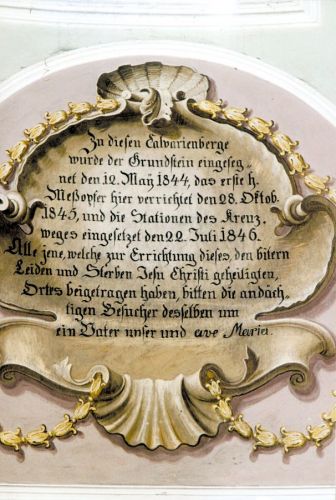 Zu diesen Calvarienberge
wurde der Grundstein eingeseg„
net den 12. Maÿ 1844, das erste h.
Meßopfer hier verrichtet den 28. Oktob.
1845, und die Stationen des Kreuz„
weges eingesetzet den 22. Juli 1846.
Alle jene, welche zur Errichtung dieses, den bitern
Leiden und Sterben Jesu Christi geheiligten,
Ortes beigetragen haben, bitten die andäch„
tigen Besucher desselben um
ein Vater unser und ave Maria.